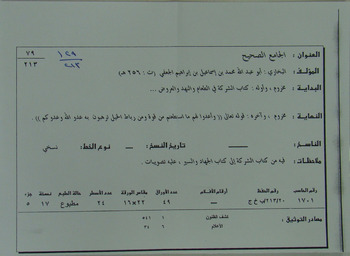 ٧٩
٢١٣
١٢٩
٢١٣
العنوان : الجامع الصحيح
المؤلف : البخاري : أبو عبد الله محمد بن إسماعيل بن إبراهيم الجعفي (ت : ٢٥٦ هـ)
البداية : مخروم ، وأوله : كتاب الشركة في الطعام والنهد والعروض ...
النهاية : مخروم ، وآخره : قوله تعالى (( وأعدوا لهم ما استطعتم من قوة ومن رباط الخيل ترهبون به عدو الله وعدوكم )) .
الناسخ : — تاريخ النسخ : — نوع الخط : نسخي
ملاحظات : فيه من كتاب الشركة إلى كتاب الجهاد والسير ، عليه تصويبات .
رقم الحاسب رقم الحفظ أرقام الأفلام عدد الأوراق مقاس الورقة عدد الأسطر حالة الطبع نسخة جزء
١٧٠١ ٢١٣/٢٠ ب خ ج — ٤٩ ٢٢×١٦ ٢٤ مطبوع ١٧ ٥
مصادر التوثيق : كشف الظنون ١ ٥٤١
الأعلام ٦ ٣٤